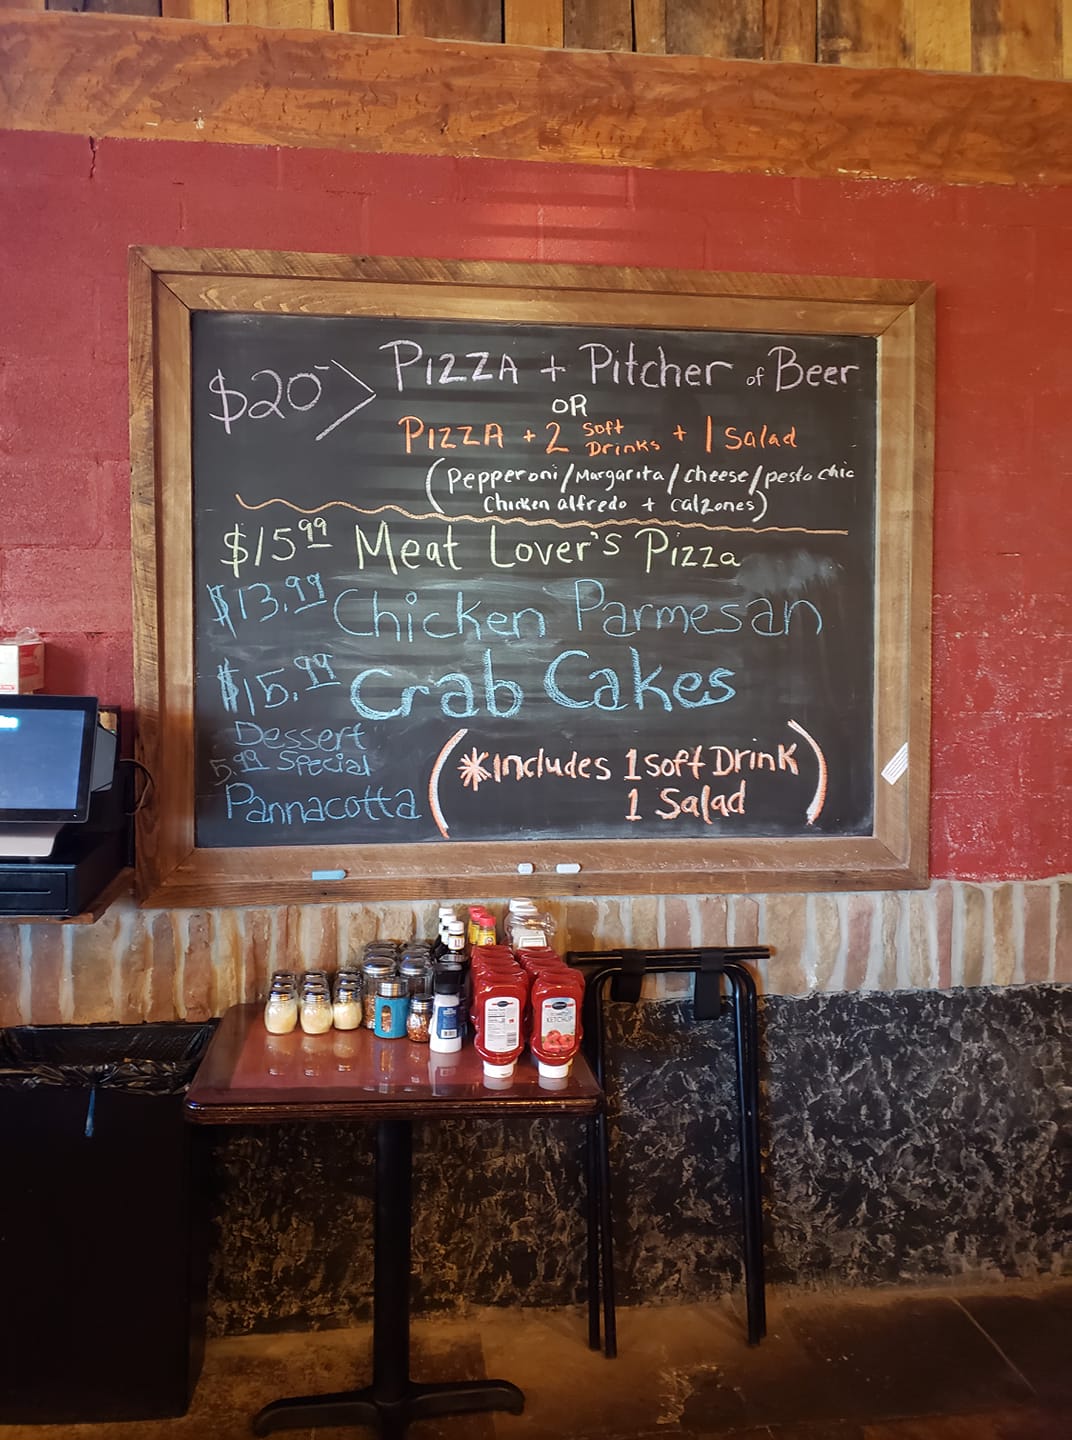 $20- > PIZZA + Pitcher of Beer
OR
PIZZA + 2 Soft Drinks + 1 Salad
(Pepperoni/Margarita/Cheese/pesto chic
Chicken alfredo + calzones)
$15 99 Meat Lover's Pizza
$13.99 Chicken Parmesan
$15.99 Crab Cakes
Dessert
5.99 Special
Pannacotta
(*Includes 1 Soft Drink
1 Salad)
KETCHUP